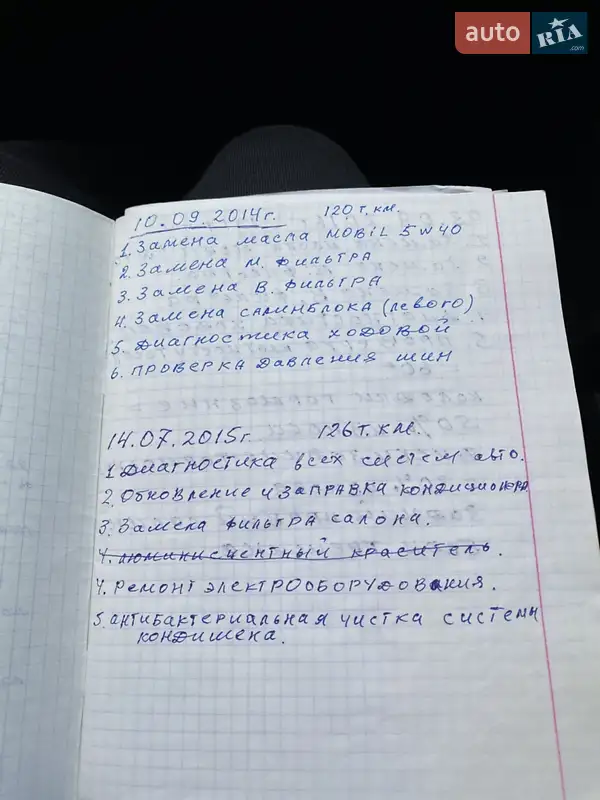 auto RIA .com
10.09.2014г. 120 т.км.
1. Замена масла MOBiL 5W40
2. Замена м. фильтра
3. Замена в. фильтра
4. Замена салинблока (левого)
5. Диагностика ходовой
6. Проверка давления шин
14.07.2015г. 126 т.км.
1 Диагностика всех систем авто.
2. Обновление и заправка кондиционера
3. Замена фильтра салона.
4. люминисцентный краситель.
4. Ремонт электрооборудования.
5. антибактериальная чистка системы
кондишена.